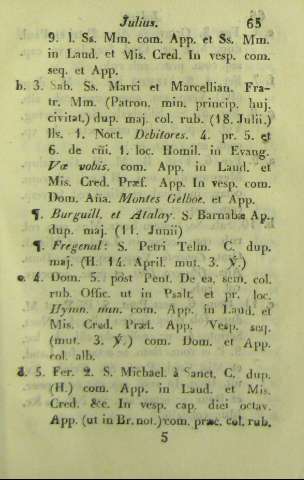 Julius. 65
9. l. Ss. Mm. com. App. et Ss. Mm.
in Laud. et Mis. Cred. In vesp. com.
seq. et App.
b. 3. Sab. Ss. Marci et Marcellian. Fra-
tr. Mm. (Patron. min. princip. huj.
civitat.) dup. maj. col. rub. (18. Julii.)
lls. 1. Noct. Debitores. 4. pr. 5. et
6. de cñi. 1. loc. Homil. in Evang.
Væ vobis. com. App. in Laud. et
Mis. Cred. Præf. App. In vesp. com.
Dom. Aña. Montes Gelboe. et App.
¶. Burguill. et Atalay. S. Barnabæ Ap.
dup. maj. (11. Junii)
¶. Fregenal: S. Petri Telm. C. dup.
maj. (H. 14. April. mut. 3. ℣.)
c. 4. Dom. 5. post Pent. De ea, sem. col.
rub. Offic. ut in Psalt. et pr. loc.
Hymn. nun. com. App. in Laud. et
Mis. Cred. Præf. App. Vesp. seq.
(mut. 3. ℣.) com. Dom. et App.
col. alb.
d. 5. Fer. 2. S. Michael. à Sanct. C. dup.
(H.) com. App. in Laud. et Mis.
Cred. &c. In vesp. cap. diei octav.
App. (ut in Br. not.) com. præc. col. rub.
5